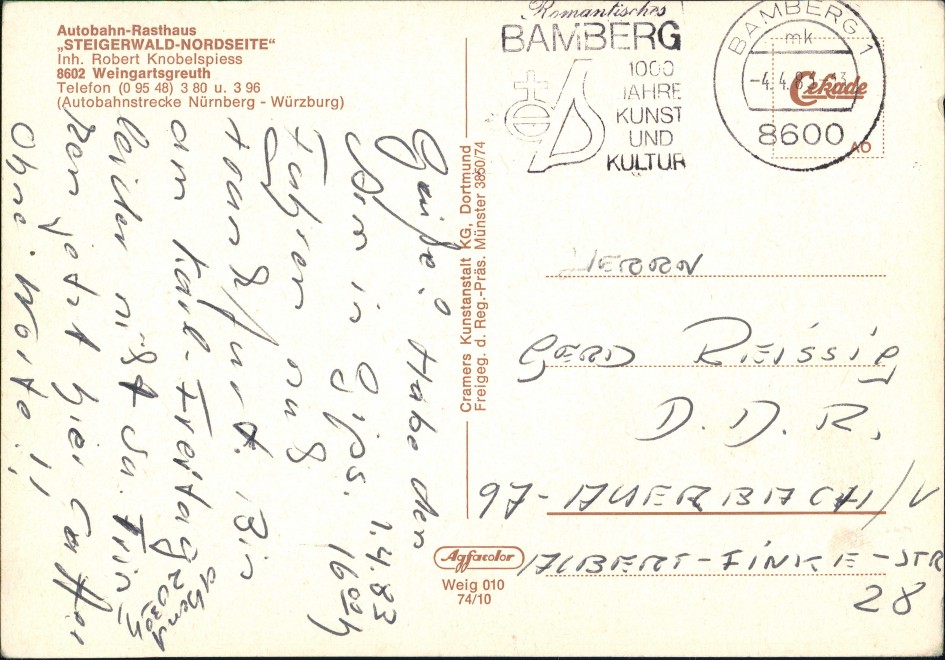 Autobahn-Rasthaus
„STEIGERWALD-NORDSEITE“
Inh. Robert Knobelspiess
8602 Weingartsgreuth
Telefon (0 95 48) 3 80 u. 3 96
(Autobahnstrecke Nürnberg - Würzburg)
Grüße! Habe den
Arm in Gips.
1.4.83
16ooh
Fahren nach
Frankfurt. Bin
am Karl-Freitag
Abend
20 30h
leider nicht da. Trin-
ken jetzt hier Caffee
Ohne Worte!!
Cramers Kunstanstalt KG, Dortmund
Freigeg. d. Reg.-Präs. Münster 3850/74
Agfacolor
Weig 010
74/10
Romantisches
BAMBERG
1000
JAHRE
KUNST
UND
KULTUR
BAMBERG 1
mk
8600
Cekade
AÖ
HERRN
GERD REISSIG
D. D. R.
97-AUERBACH/V
ALBERT-FINKE-STR
28